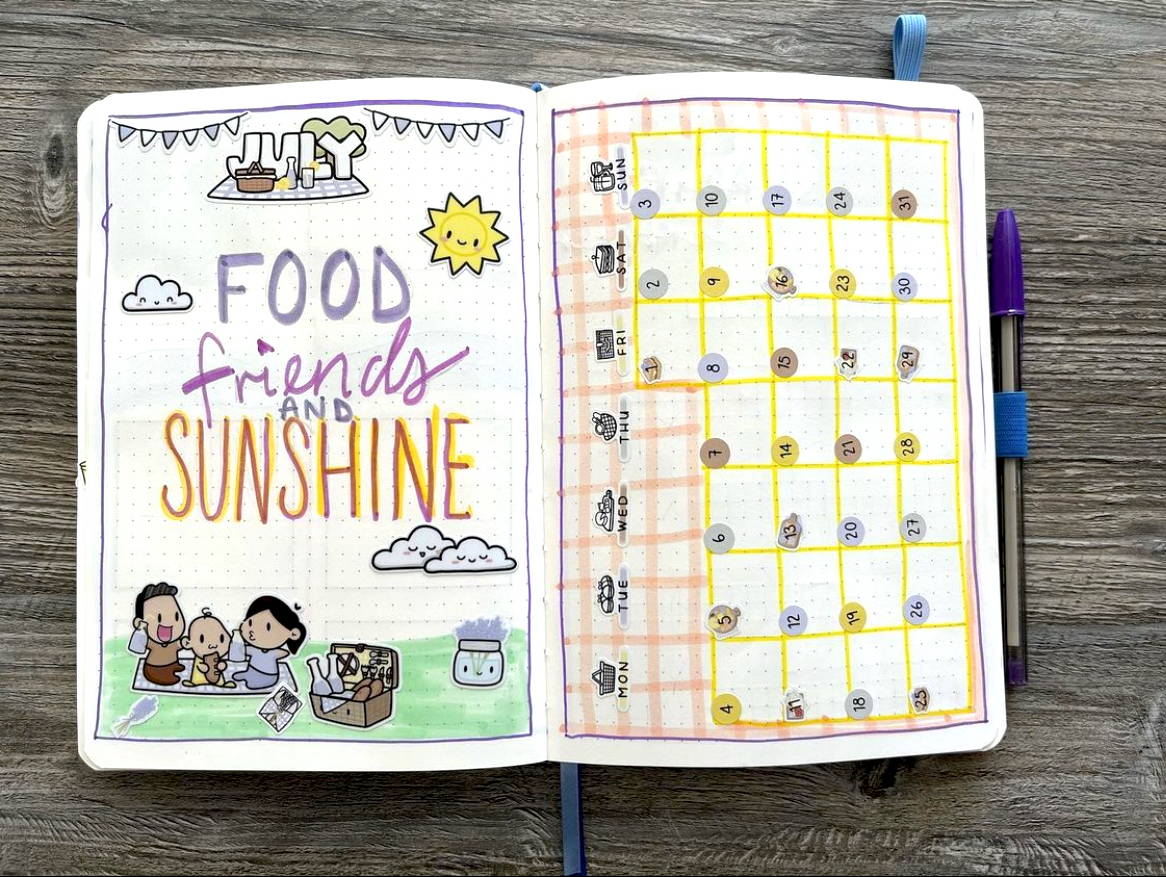 JULY
FOOD
friends
AND
SUNSHINE
MON TUE WED THU FRI SAT SUN
1 2 3
4 5 6 7 8 9 10
11 12 13 14 15 16 17
18 19 20 21 22 23 24
25 26 27 28 29 30 31